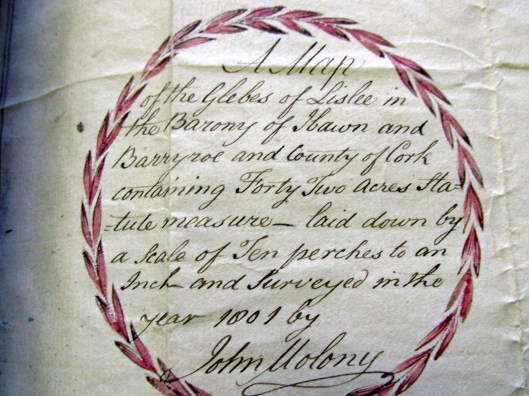 A Map
of the Glebes of Lislee in
the Barony of Ibawn and
Barryroe and County of Cork
containing Forty Two Acres Sta=
=tute measure — laid down by
a Scale of Ten perches to an
Inch and Surveyed in the
year 1801 by
John Molony